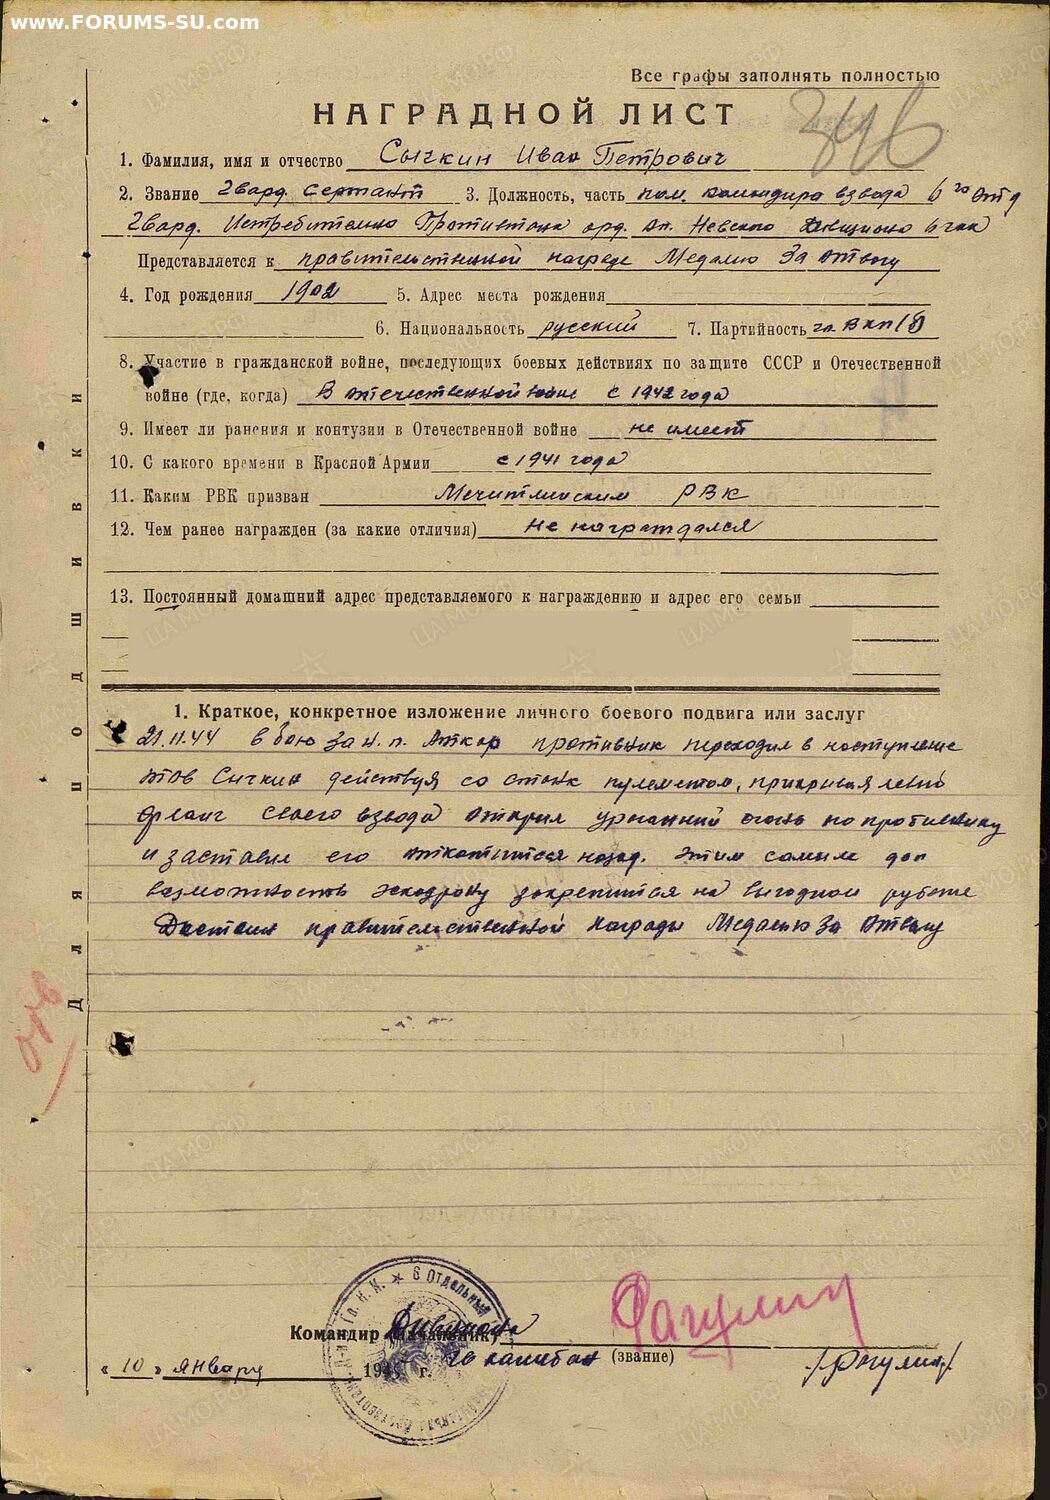 www.FORUMS-SU.com
Все графы заполнять полностью
НАГРАДНОЙ ЛИСТ
346
1. Фамилия, имя и отчество Сычкин Иван Петрович
2. Звание Гвард. Сержант 3. Должность, часть пом. командира взвода 6го отд
Гвард. Истребительно Противтанк орд. Ал. Невского дивизиона 6 гкк
Представляется к правительственной награде Медалью За отвагу
4. Год рождения 1902 5. Адрес места рождения
6. Национальность русский 7. Партийность чл. ВКП(б)
8. Участие в гражданской войне, последующих боевых действиях по защите СССР и Отечественной
войне (где, когда) В отечественной войне с 1942 года
9. Имеет ли ранения и контузии в Отечественной войне не имеет
10. С какого времени в Красной Армии с 1941 года
11. Каким РВК призван РВК
12. Чем ранее награжден (за какие отличия) Не награждался
13. Постоянный домашний адрес представляемого к награждению и адрес его семьи
1. Краткое, конкретное изложение личного боевого подвига или заслуг
21.11.44 в бою за н. п. Аткар противник переходил в наступление
тов Сычкин действуя со станк пулеметом, прикрывая левый
фланг своего взвода открыл огонь по противнику
и заставил его откатится назад. Этим самым дал
возможность эскадрону закрепится на выгодном рубеже
Достоин правительственной награды Медалью За Отвагу
Командир (Начальник) Дивизиона
гв капитан (звание) /Рагулин/
« 10 » январу 194 г.
6 Отдельный
Для подшивки